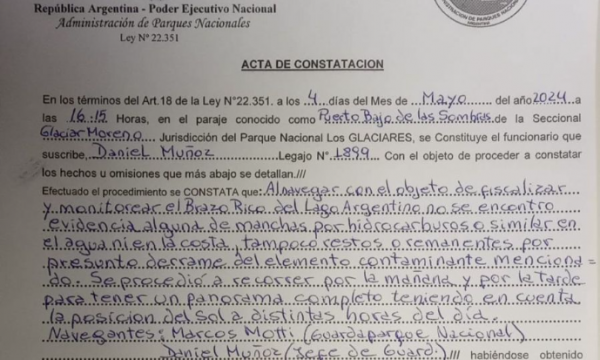 República Argentina - Poder Ejecutivo Nacional
Administración de Parques Nacionales
Ley Nº 22.351
ARGENTINA
ACTA DE CONSTATACION
En los términos del Art.18 de la Ley N°22.351. a los 4 días del Mes de Mayo del año 2024 a
las 16:15 Horas, en el paraje conocido como Puerto Bajo de las Sombras de la Seccional
Glaciar Moreno Jurisdicción del Parque Nacional Los GLACIARES, se Constituye el funcionario que
suscribe, Daniel Muñoz Legajo N° 1899. Con el objeto de proceder a constatar
los hechos u omisiones que más abajo se detallan.///
Efectuado el procedimiento se CONSTATA que: Al navegar con el objeto de fiscalizar
y monitorear el Brazo Rico del Lago Argentino no se encontro
evidencia alguna de manchas por hidrocarburos o similar en
el agua ni en la costa, tampoco restos o remanentes por
presunto derrame del elemento contaminante menciona=
do. Se procedió a recorrer por la mañana y por la Tarde
para tener un panorama completo teniendo en cuenta
la posición del Sol a distintas horas del día.
Navegantes: Marcos Motti (Guardaparque Nacional)
Daniel Muñoz (Jefe de Guard.) /// habiéndose obtenido